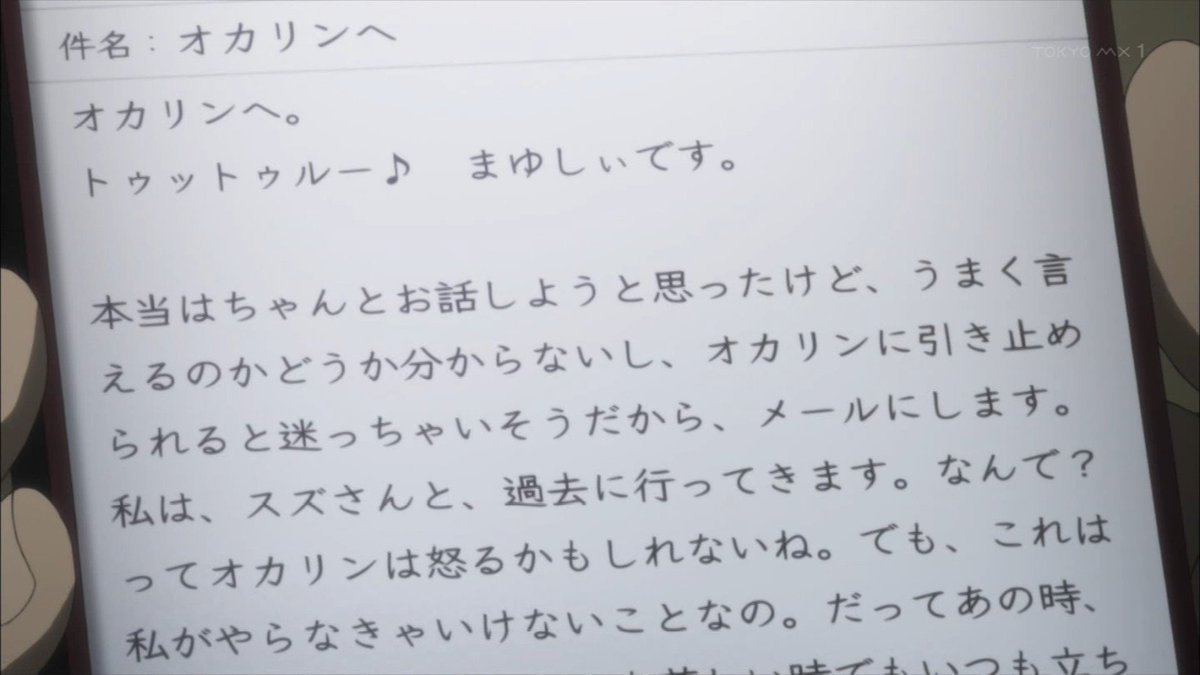 件名：オカリンへ
TOKYO MX 1
オカリンへ。
トゥットゥルー♪　まゆしぃです。
本当はちゃんとお話しようと思ったけど、うまく言
えるのかどうか分からないし、オカリンに引き止め
られると迷っちゃいそうだから、メールにします。
私は、スズさんと、過去に行ってきます。なんで？
ってオカリンは怒るかもしれないね。でも、これは
私がやらなきゃいけないことなの。だってあの時、
時でもいつも立ち